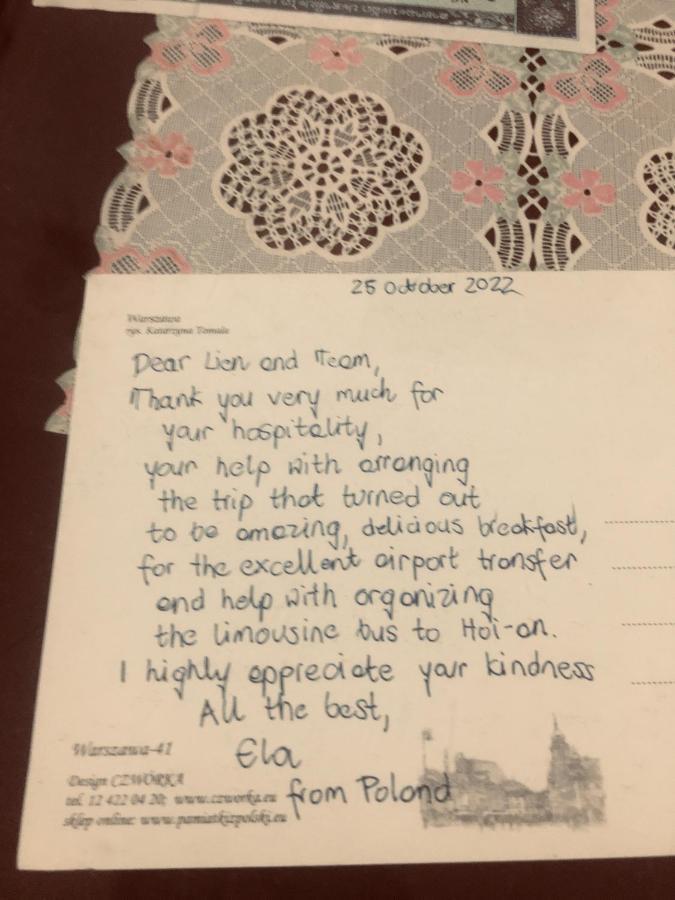 25 October 2022
Warszawa
rys. Katarzyna Tomala
Dear Lien and Team,
Thank you very much for
your hospitality,
your help with arranging
the trip that turned out
to be amazing, delicious breakfast,
for the excellent airport transfer
and help with organizing
the limousine bus to Hoi-an.
I highly appreciate your kindness
All the best,
Ela
from Poland
Warszawa-41
Design CZWÓRKA
tel. 12 422 04 20; www.czworka.eu
sklep online: www.pamiatkizpolski.eu